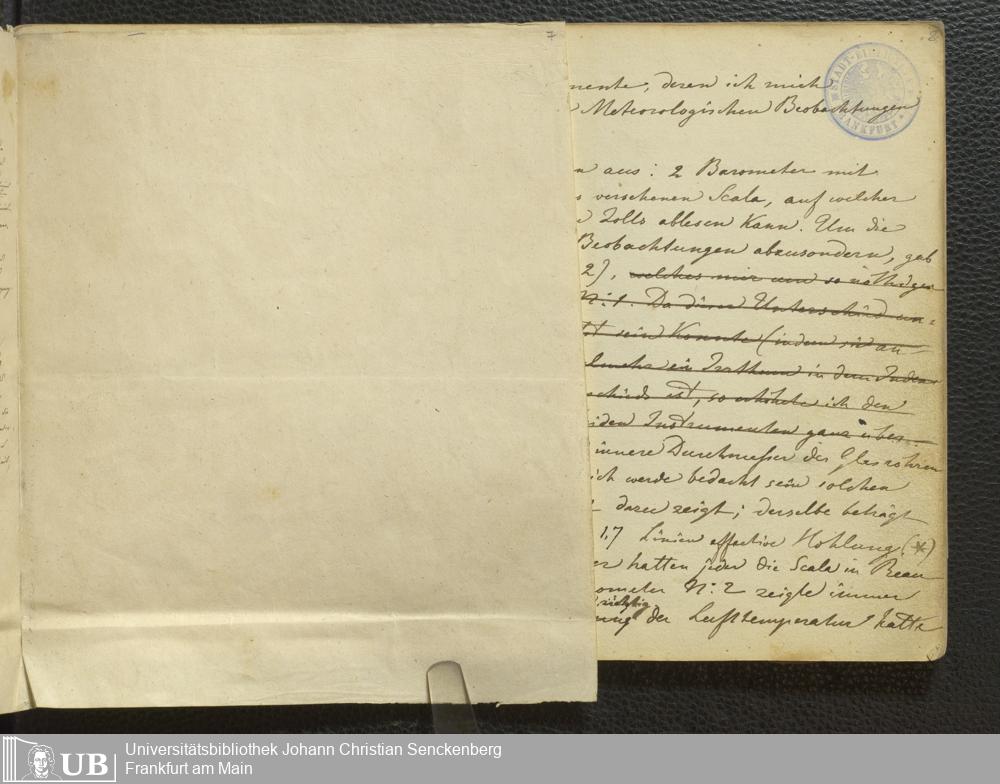 7
8
STADT-BI
FRANKFURT
mente, deren ich mich
Meteorologischen Beobachtungen
n aus: 2 Barometer mit
versehenen Scala, auf welcher
Zolls ablesen Kann. Um die
Beobachtungen abzusondern, gab
2), welches mir um so nöthiger
N: 1. Da dieser Unterschied un=
sein Konnte (indem
ein Irrthum in dem
schieds ist, so erhöhete ich den
iden Instrumenten ganz über
innere Durchmesser der Glasröhren
ich werde bedacht sein solchen
dazu zeigt; derselbe beträgt
1,7 Linien effective Hohlung. (*)
er hatten jeder die Scala in Reau
ometer N: 2 zeigte immer
richtig
ung der Lufttemperatur hatte
UB
Universitätsbibliothek Johann Christian Senckenberg
Frankfurt am Main